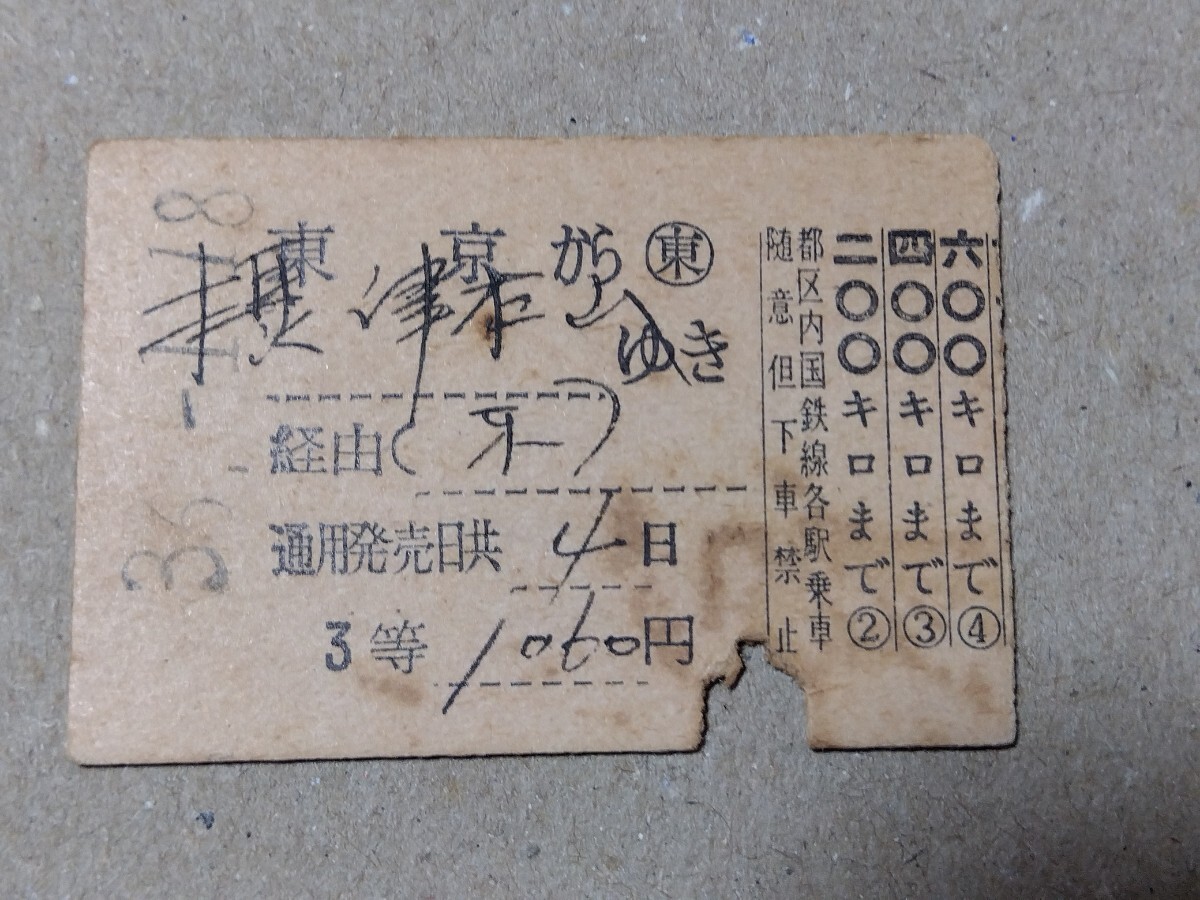 東京から㊞東
摂津本山ゆき
経由( )
通用発売日共 4日
3等 1060円
六〇〇キロまで④
四〇〇キロまで③
二〇〇キロまで②
都区内国鉄線各駅乗車
随意但下車禁止